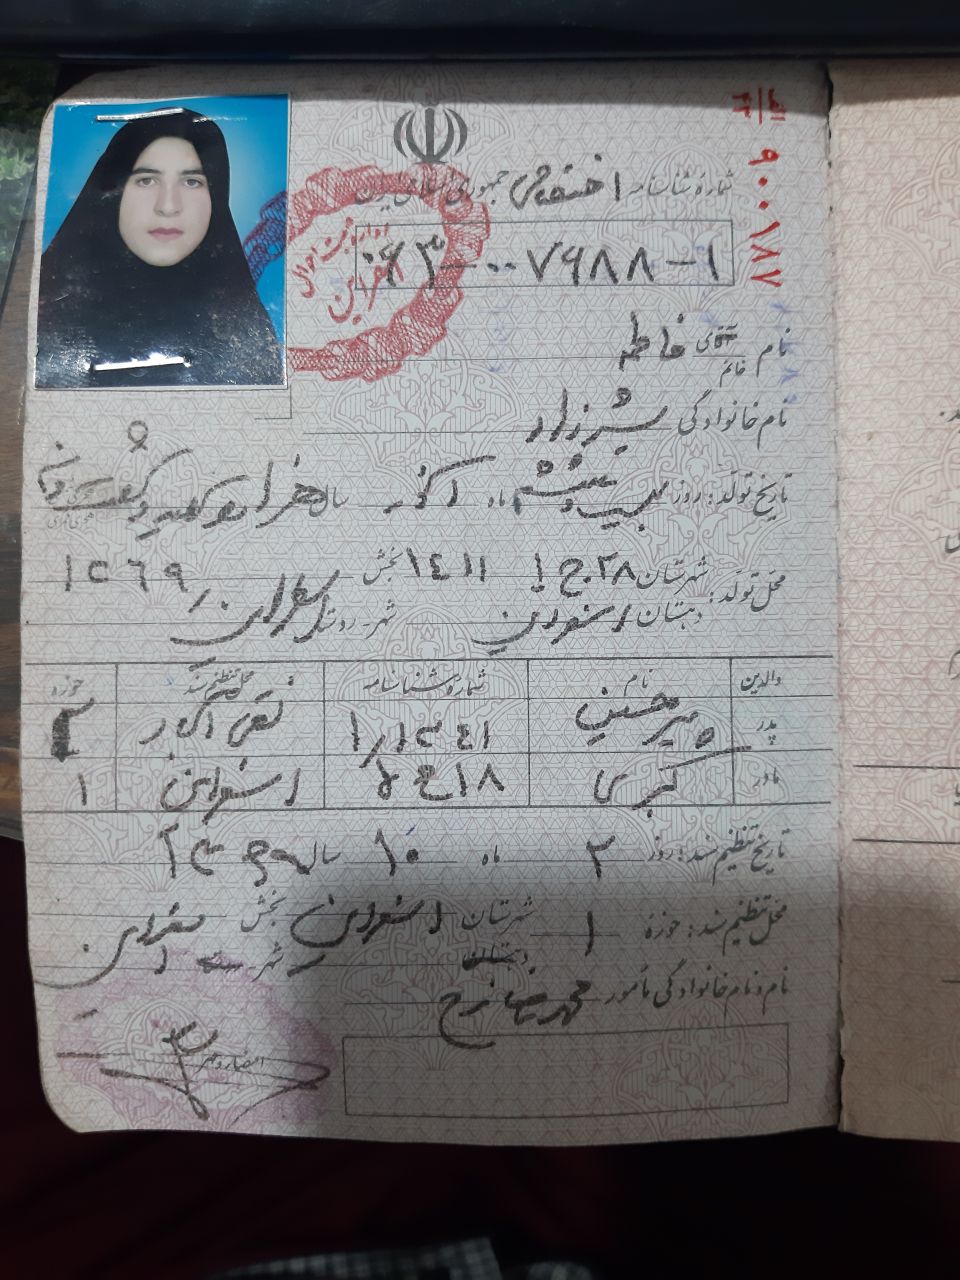 الف
۳۳
۹۰۰۱۸۷
شماره شناسنامه اختصاصی جمهوری اسلامی ایران
۰۶۳-۰۰۷۹۸۸-۱
نام آقای خانم فاطمه
نام خانوادگی شیرزاد
تاریخ تولد: روز بیست و ششم ماه آذر سال هزار و سیصد و شصت و نه هجری شمسی
محل تولد: شهرستان ۲۸ ج ۱ ۱۴۱۱ بخش ۱۳۶۹
دهستان اسفراین شهر - روستا اسفراین
والدین نام شماره شناسنامه محل تنظیم سند حوزه
پدر میرحسین ۱/۱۳۴۱ نقی آباد ۲
مادر کبری ۱۸ اسفراین ۱
تاریخ تنظیم سند: روز ۲ ماه ۱۰ سال ۱۳۶۹
محل تنظیم سند: حوزه ۱ شهرستان اسفراین بخش اسفراین
دهستان شهر
نام و نام خانوادگی مأمور محمدرضا
امضاء و مهر